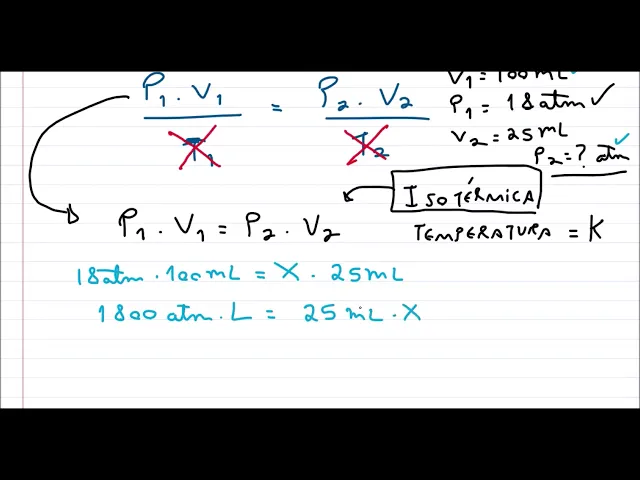 V₁ = 100mL
P₁ . V₁ = P₂ . V₂
P₁ = 18atm ✓
T₁ T₂
V₂ = 25mL
P₂ = ? atm ✓
ISOTÉRMICA
P₁ . V₁ = P₂ . V₂
TEMPERATURA = K
18atm . 100mL = X . 25mL
1800 atm . L = 25 mL . X